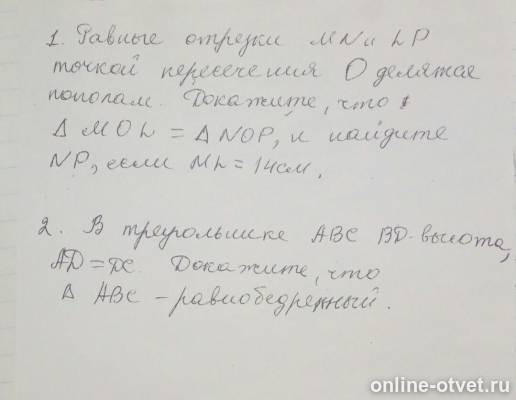 1. Равные отрезки MN и LP
точкой пересечения O делятся
пополам. Докажите, что
△ MOL = △ NOP, и найдите
NP, если ML = 14см.
2. В треугольнике ABC BD-высота,
AD = DC. Докажите, что
△ ABC - равнобедренный.
online-otvet.ru